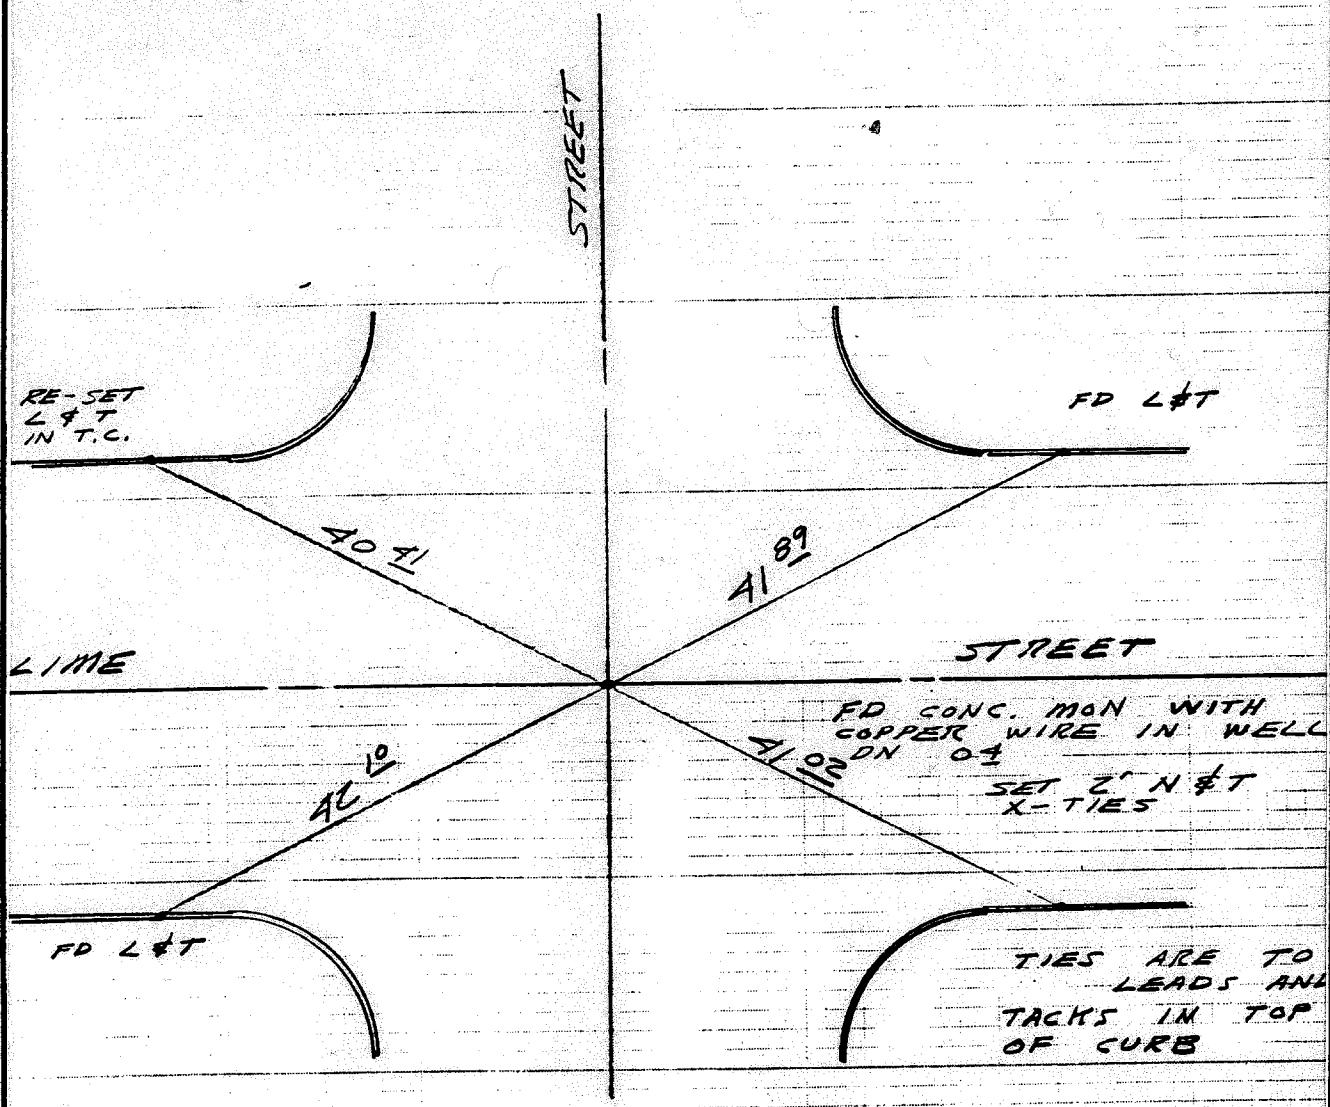 STREET
RE-SET
L & T
IN T.C.
FD L&T
40 41
41 89
LIME
STREET
FD CONC. MON WITH
COPPER WIRE IN WELL
DN 04
SET 2" N &T
X-TIES
42 10
41 02
FD L&T
TIES ARE TO
LEADS AND
TACKS IN TOP
OF CURB